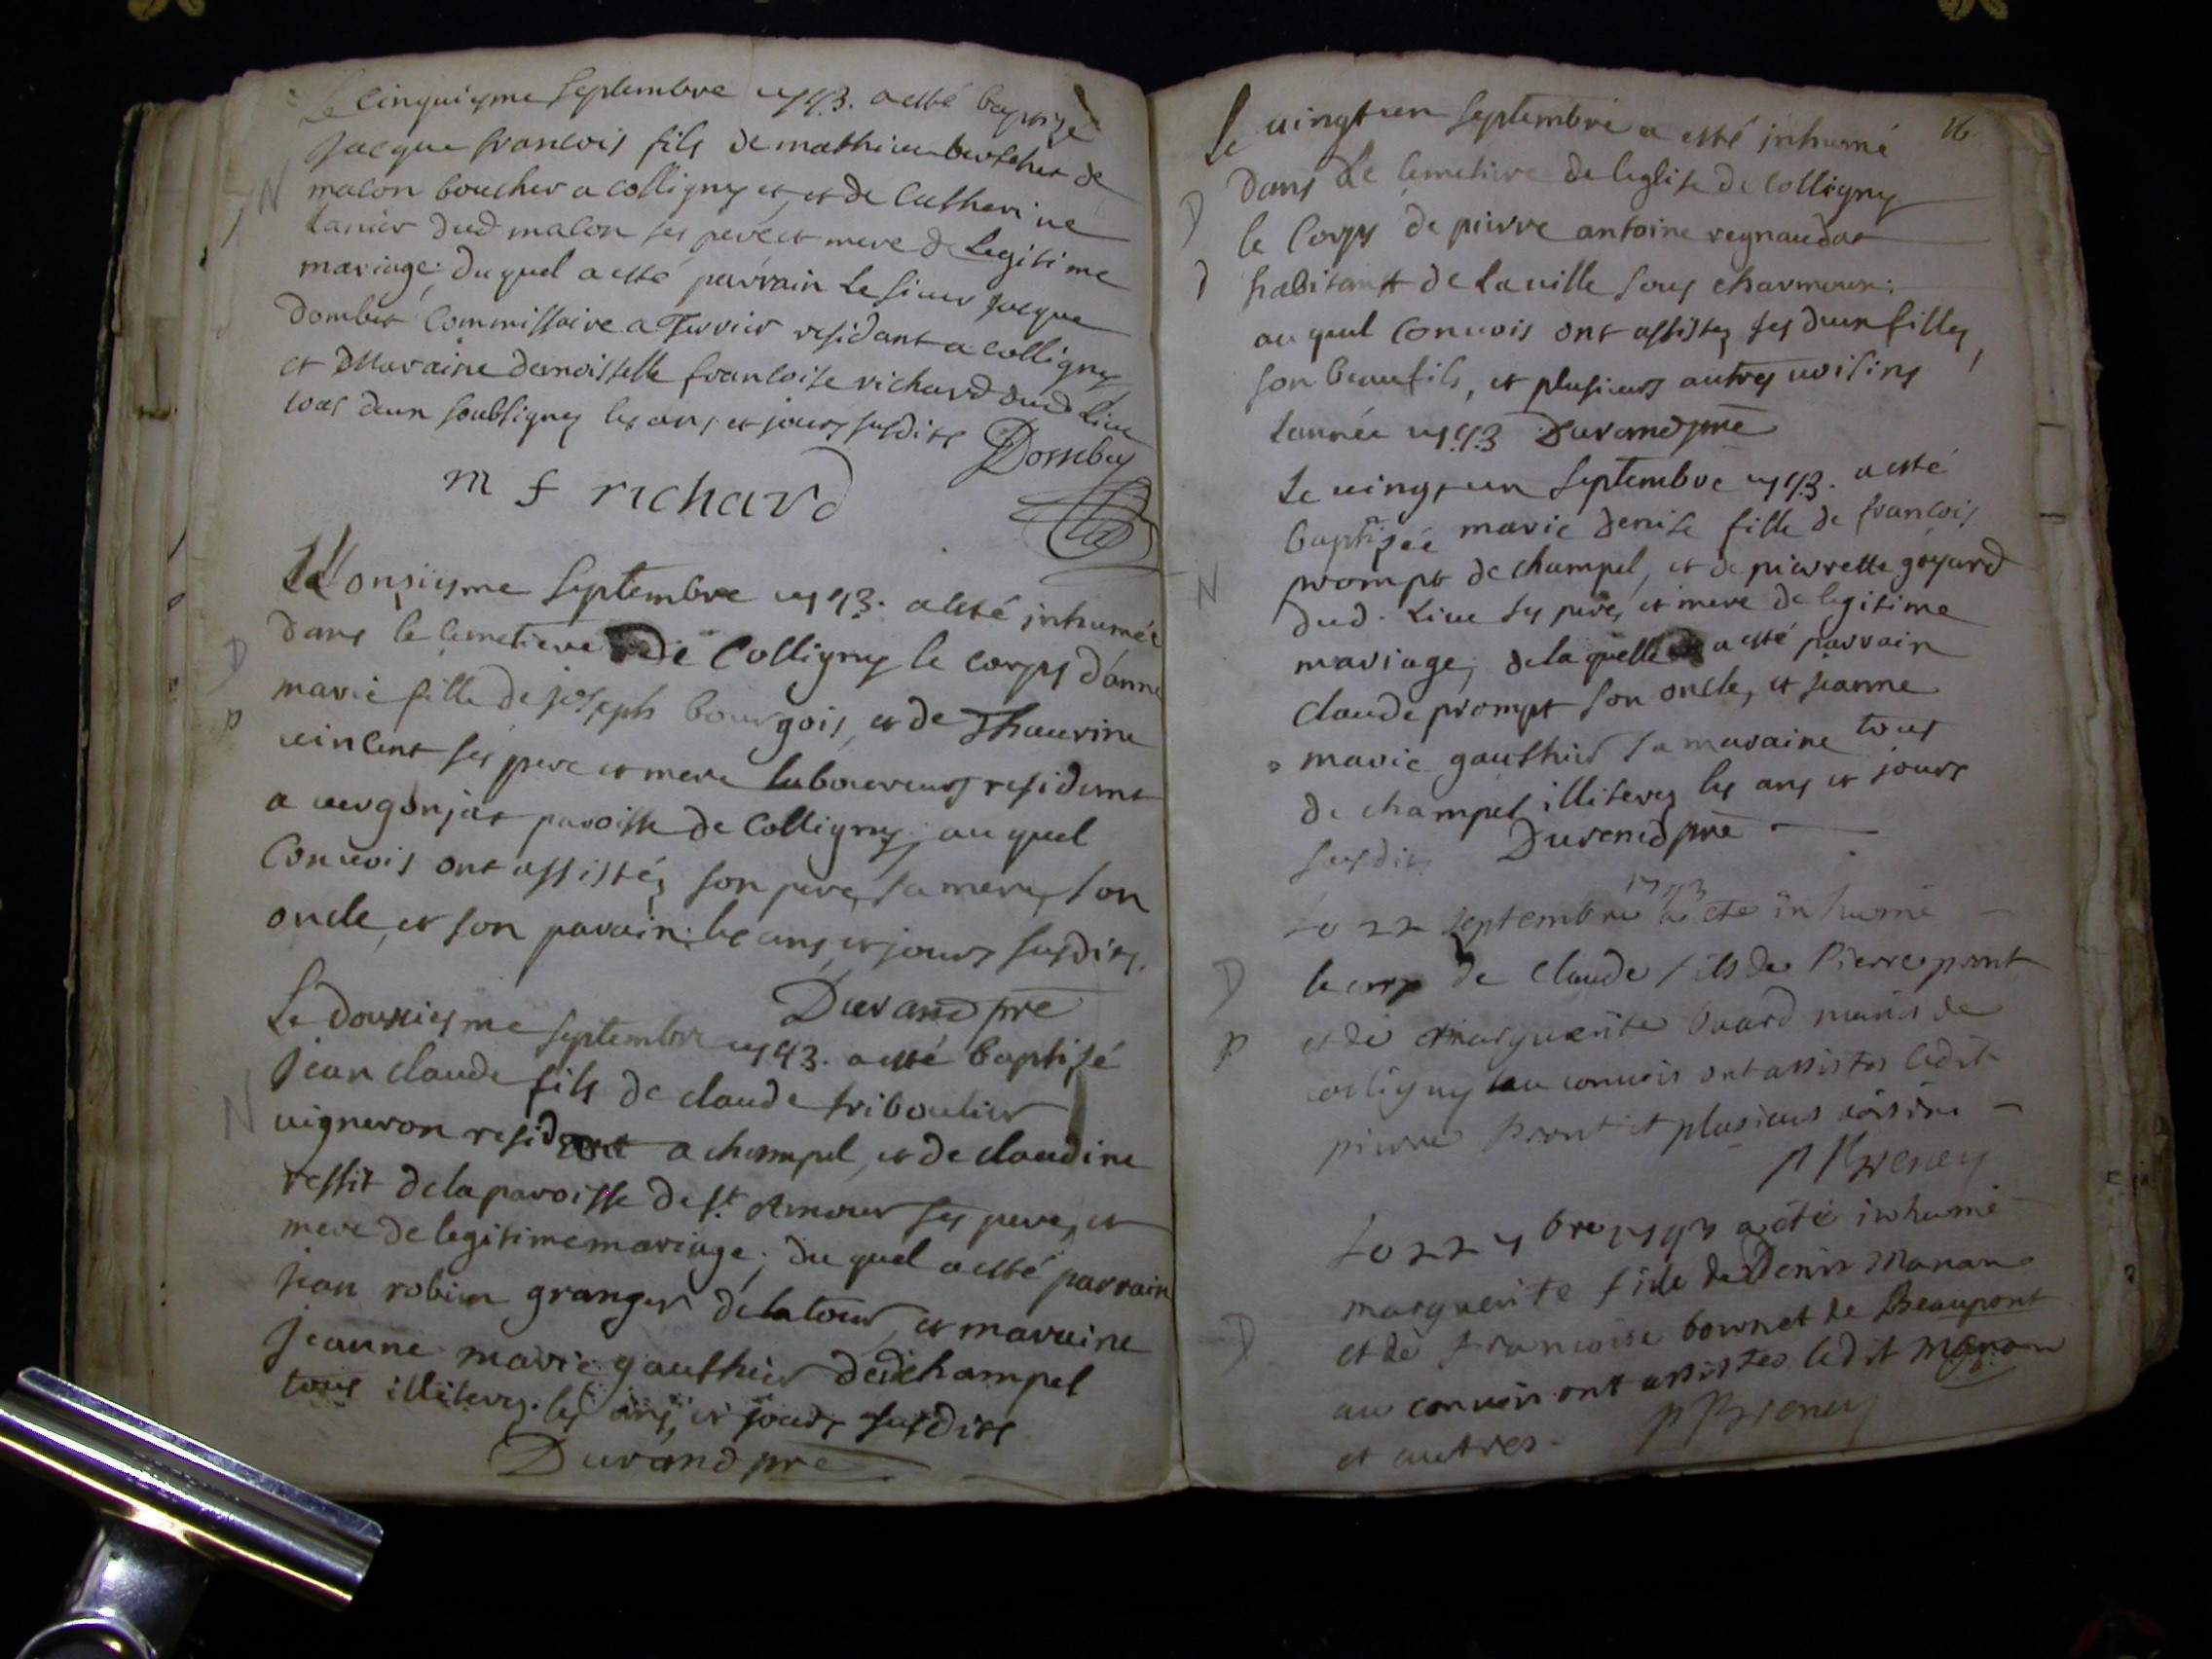 Le cinquiyme septembre 1743. a esté baptizé
N
jacque francois fils de mathieu berthet de
macon boucher a colligny et et de Catherine
dud macon ses pere et mere de legitime
mariage; du quel a esté parrain Le sieur jacque
Dombey Commissaire a Terrier residant a colligny
et Maraine demoisselle francoise richard dud Lieu
tous deux soubsignez les ans et jours susdits Dombey
m f richard
Le onsiyme septembre 1743. a esté inhumée
D
dans le cemetiere de Colligny le corps d'anne
marie fille de joseph bourgois, et de Thaurine
p
vincent ses pere et mere laboureurs residant
a vergonjat paroisse de Colligny; au quel
Convois ont assistéz son pere, sa mere, son
oncle, et son parain; les ans et jours susdits.
Durand pre
Le dousiesme septembre 1743. a esté baptisé
jean claude fils de claude triboulier
N
vigneron resident a champel, et de claudine
ressit de la paroisse de st. Amour ses pere, et
mere de legitime mariage; du quel a esté parrain
jean robin granger de la tour, et maraine
jeanne marie gauthier de champel
tous illiterez. les ans, et jours susdits
Durand pre
16
Le vingt un septembre a esté inhumé
dans Le cemetiere de leglise de Colligny
D
le Corps de pierre antoine regnaudat
habitant de La ville sous charmoux;
au quel Convois ont assistez ses deux filles,
son beaufils, et plusieurs autres voisins
Lannée 1743 Durand pre
Le vingt un septembre 1743. a esté
baptisée marie denise fille de francois
N
prompt de champel, et de pierrette goyard
dud. Lieu ses pere, et mere de legitime
mariage; de la quelle a esté parrain
claude prompt son oncle, et jeanne
marie gauthier sa maraine tous
de champel illiterez les ans et jours
susdits Durand pre
1743
Le 22 septembre a été inhumé
D
le corp de claude fils de Pierre pront
p
et de marguerite buard mariés de
colligny au convois ont assistes ledit
pierre pront et plusieurs voisins
P Breney
Le 22 7bre 1743 a été inhumé
marguerite fille de Denis Manan
D
et de francoise bornet de Beaupont
au convois ont assistes ledit Manan
et autres. P Breney